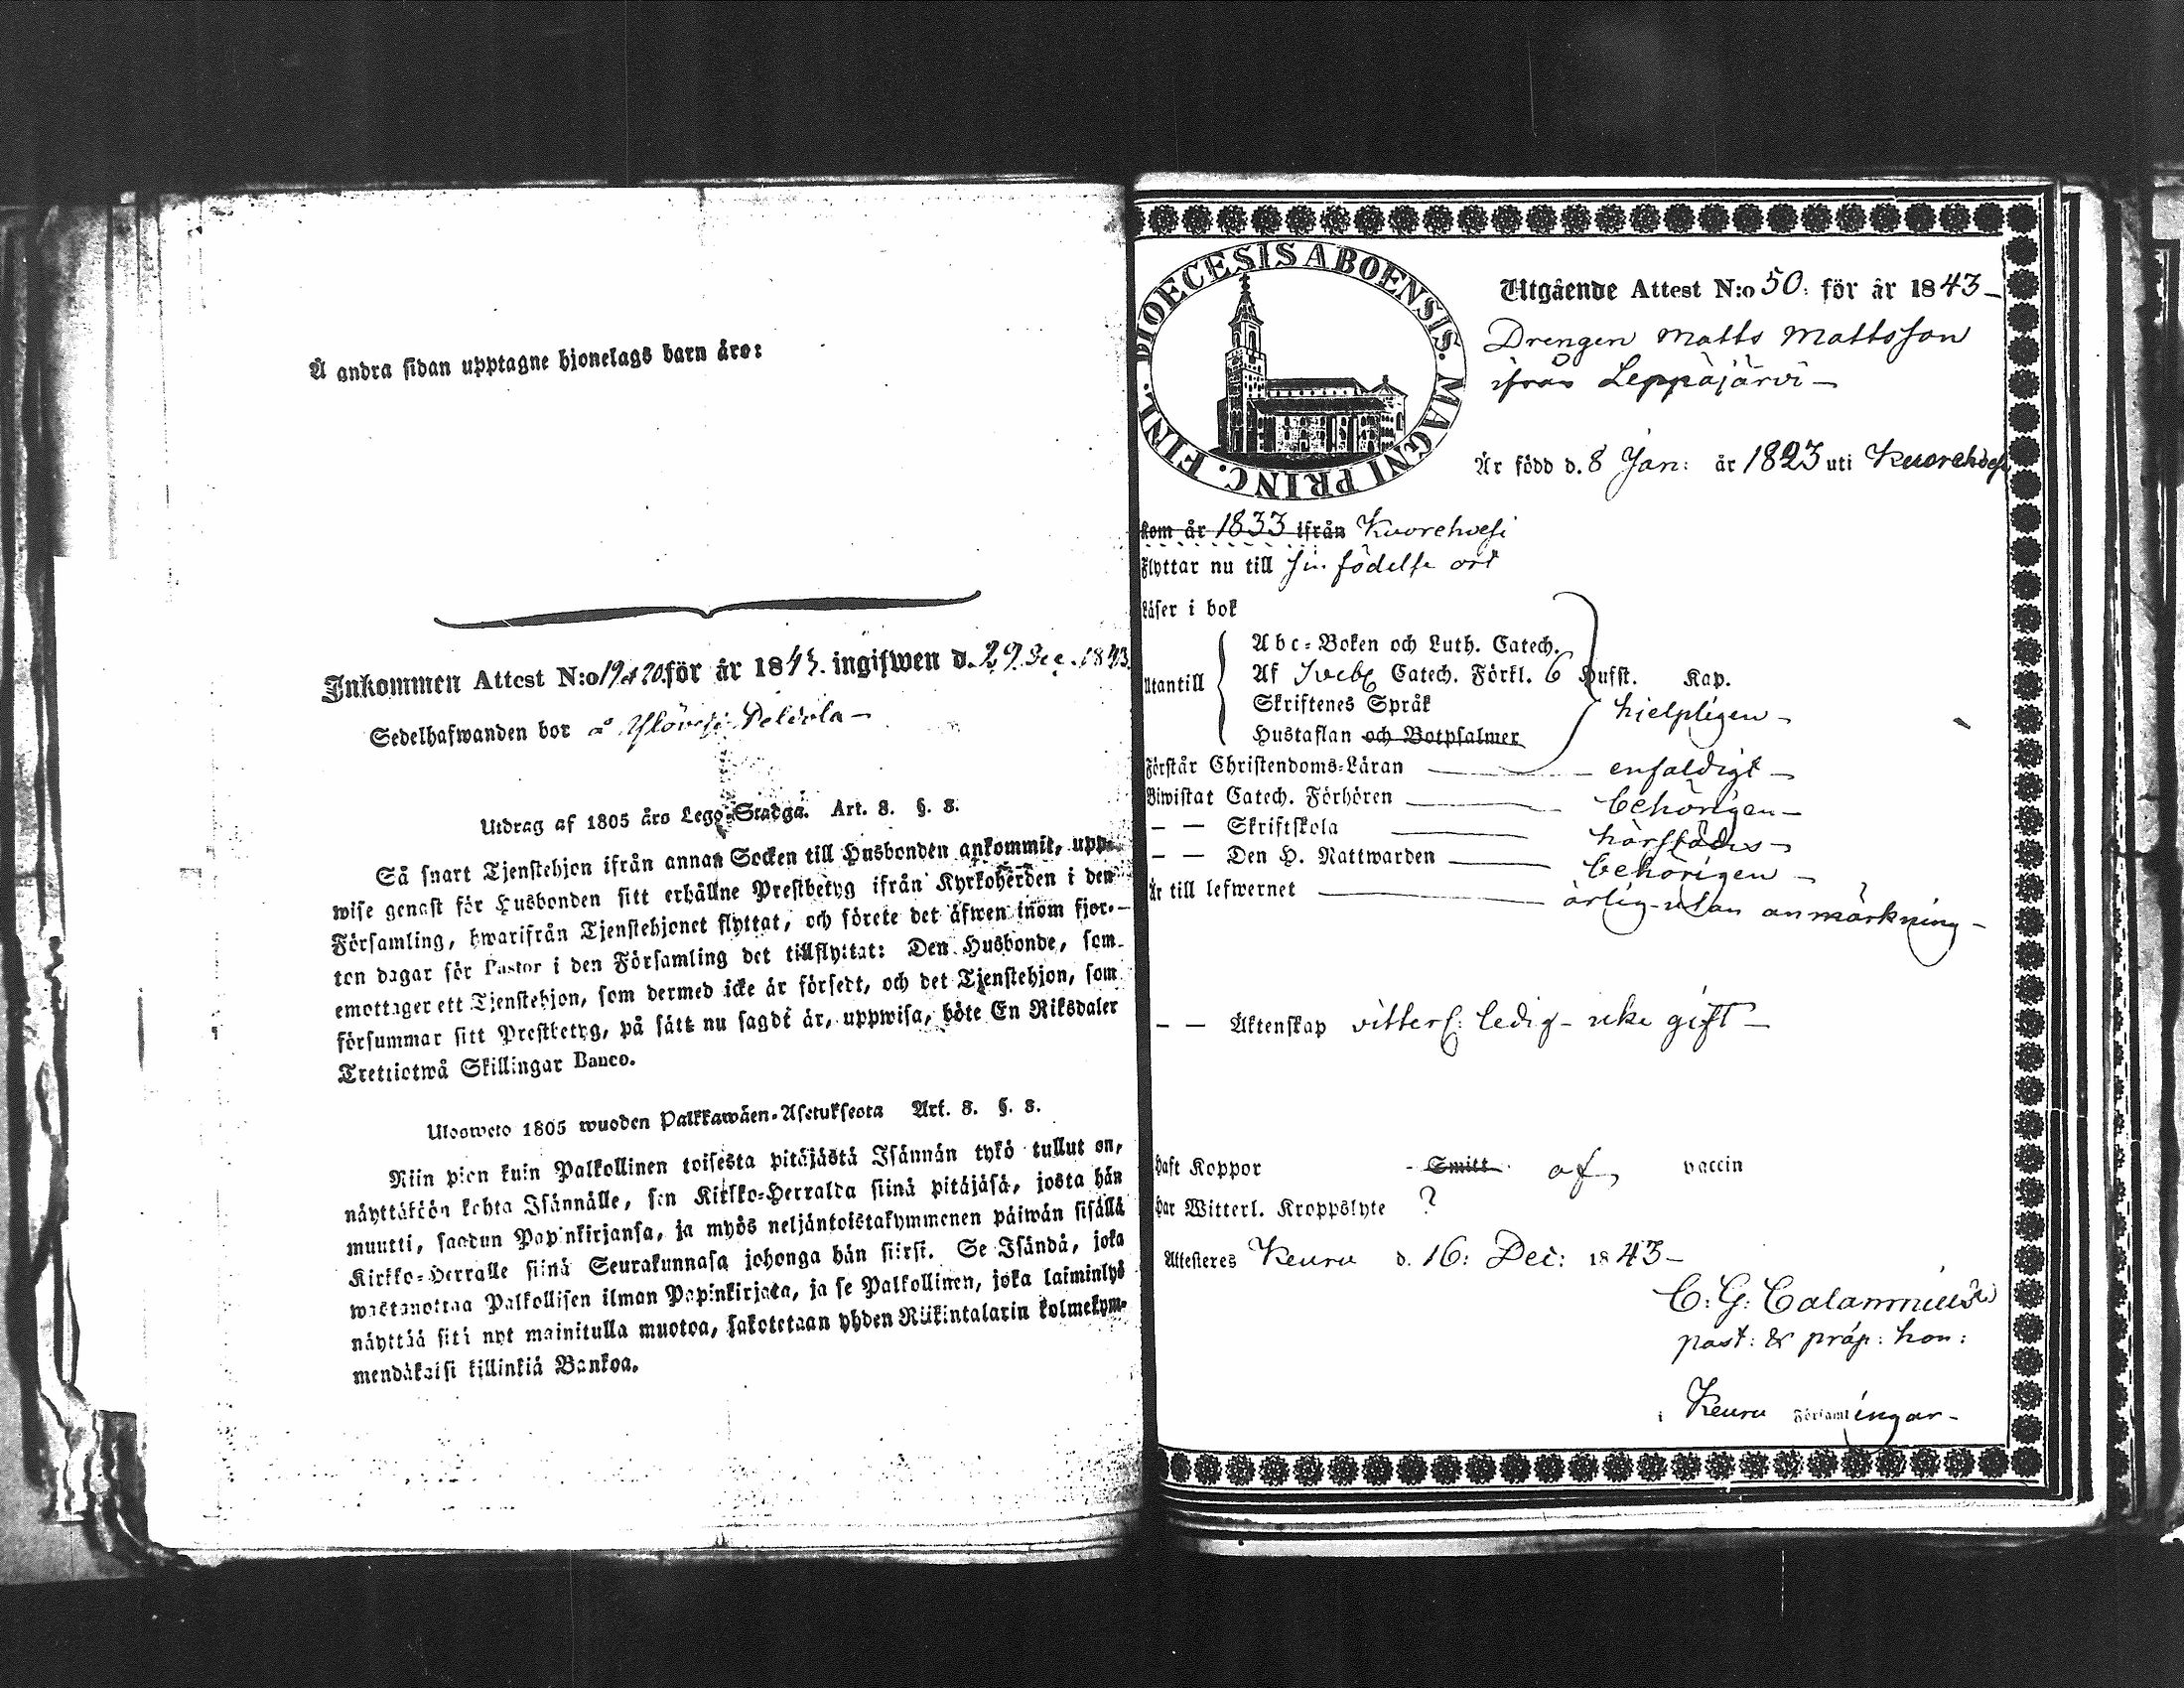 Å andra sidan upptagne hjonelags barn äro:
Inkommen Attest N:o 19 et 20. för år 1843. ingifwen d. 29 Dec. 1843.
Sedelhafwanden bor å
Utdrag af 1805 års Lego-Stadga. Art. 8. §. 8.
Så snart Tjenstehjon ifrån annan Socken till Husbonden ankommit, upp-
wise genast för Husbonden sitt erhållne Prestbetyg ifrån Kyrkoherden i den
Församling, hwarifrån Tjenstehjonet flyttat, och förete det äfwen inom fjor-
ton dagar för Pastor i den Församling det tillflyttat: Den Husbonde, som
emottager ett Tjenstehjon, som dermed icke är försedt, och det Tjenstehjon, som
försummar sitt Prestbetyg, på sätt nu sagdt är, uppwisa, böte En Riksdaler
Trettiotwå Skillingar Banco.
Ulosweto 1805 wuoden Palkkawäen-Asetuksesta Art. 8. §. 8.
Niin pian kuin Palkollinen toisesta pitäjästä Isännän tykö tullut on,
näyttäköön kohta Isännälle, sen Kirkko-Herralda siinä pitäjäsä, josta hän
muutti, saadun Papinkirjansa, ja myös neljäntoistakymmenen päiwän sisällä
Kirkko-Herralle siinä Seurakunnasa johonga hän siirsi. Se Isändä, joka
wastanottaa Palkollisen ilman Papinkirjata, ja se Palkollinen, joka laiminlyö
näyttää sitä nyt mainitulla muotoa, sakotetaan yhden Riikintalarin kolmekym-
mendäkaksi killinkiä Bankoa.
DIOECESIS ABOENSIS. MAGNI PRINC. FINL.
Utgående Attest N:o 50. för år 1843
Drengen Matts Mattsson
ifrån Leppäjärvi
Är född d. 8 Jan: år 1823 uti Kuorehvesi
kom år 1833 ifrån Kuorehvesi
Flyttar nu till sin födelse ort
Läser i bok
Utantill
Abc-Boken och Luth. Catech.
Af Svebel Catech. Förkl. 6 Hufst. Kap.
Skriftenes Språk hielpligen
Hustaflan och Botpsalmer
Förstår Christendoms-Läran enfaldigt
Biwistat Catech. Förhören behörigen
— — Skriftskola härstädes
— — Den H. Nattwarden behörigen
Är till lefwernet ärlig utan anmärkning
— — Äktenskap vitterl: ledig icke gift
Haft Koppor Smitt af vaccin
Har Witterl. Kroppslyte ?
Attesteres Keuru d. 16: Dec: 1843
C: G: Calamnius
past: & präp: hon:
i Keuru Församlingar